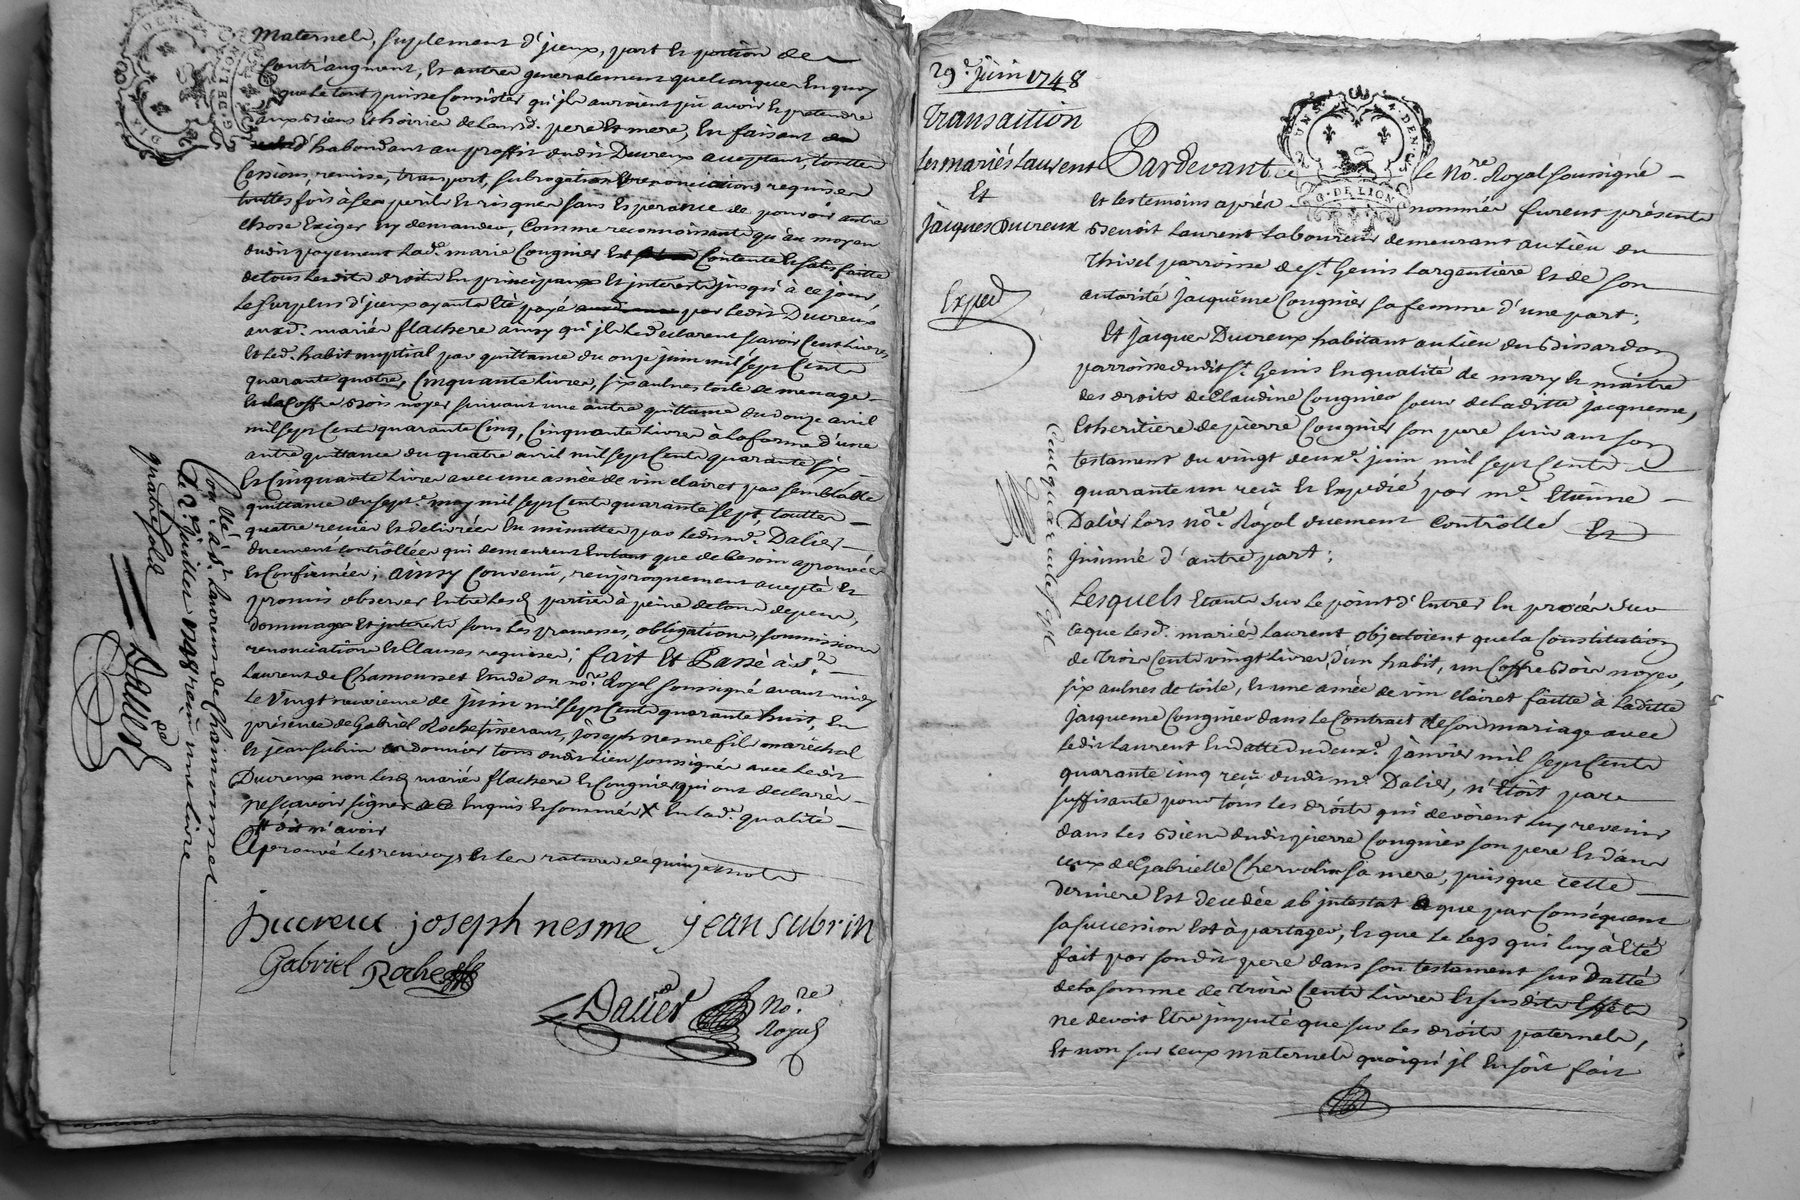 maternels, suplement d'jceux, part et portion de
Contr'augment, et autres generalement quelconques En quoy
que le tout puisse Consister qu'jls auroient pû avoir et pretendre
aux biens et hoiries de leursd. pere et mere, En faisant
d'habondant au proffit dudit Ducreux aceptant, touttes
Cessions, remises, transport, subrogations et renonciations requises
touttes fois à ses perils et risques sans Esperance de pouvoir autre
chose Exiger ny demander, Comme reconnoissante qu'au moyen
dudit payement lad. marie Cougnier Est Contente et satisfaitte
de tous lesdits droits En principaux et interests jusqu'à ce jour,
Le surplus d'jceux ayants Eté payé par ledit Ducreux
auxd. mariés flachere ainsy qu'jls le declarent sçavoir Cent livres
et led. habit nuptial par quittance du onze juin mil sept Cents
quarante quatre, Cinquante livres, six aulnes toile de menage
et le Coffre bois noyer suivant une autre quittance du onze avril
mil sept Cent quarante Cinq, Cinquante livres à la forme d'une
autre quittance du quatre avril mil sept Cents quarante six
et Cinquante livres avec une asnée de vin clairet par semblable
quittance du sept.e may mil sept Cents quarante sept, touttes
quatre recües et delivrées En minuttes par ledit me. Dalier
duement Contrôllées qui demeurent Entant que de besoin aprouvées
et Confirmées; ainsy Convenû, reciproquement acepté et
promis observer Entre lesd. parties à peine de tous depens,
dommages et interests sous les promesses, obligations, soumissions
renonciations et Clauses requises; fait Et Passé à St.
Laurent de Chamousset Etude du no.re Royal soussigné avant midy
Le vingt neuvieme de juin mil sept Cents quarante huit, En
présence de Gabriel Roche tisserant, joseph nesme fils maréchal
et jean subrin Cordonnier tous dudit lieu soussignés avec ledit
Ducreux non lesd. mariés flachere et Cougnier qui ont declarés
ne sçavoir signer de ce Enquis et sommés X En lad. qualité
# dit n'avoir
Aprouvé les renvoys et les ratures de quinze mots
Ducreux joseph nesme jean subrin
Gabriel Roche
Dalier No.re
Royal
Con.llé à St. Laurens de Chamousset
Le 2.e juillet 1748 reçû une livre
quatre sols
Dalier
29.e juin 1748
Transaction
Les mariés Laurent
Et
Jacques Ducreux
Exped
UN S. 4. DEN.
G. DE LION
Pardevant le No.re Royal soussigné
et les temoins après nommés furent présents
Benoit Laurent Laboureur demeurant au Lieu du
Thivel parroisse de St. Genis Largentiere et de son
autorité Jacquême Cougnier sa femme d'une part;
Et Jacques Ducreux habitant au lieu du Bissardon
parroisse dudit St. Genis En qualité de mary et maitre
des droits de Claudine Cougnier soeur de laditte jacqueme,
Et heritiere de pierre Cougnier son pere suivant son
testament du vingt deux.e juin mil sept Cents
quarante un reçû et Expedié par me. Etienne
Dalier Lors no.re Royal duement Controllé Et
jnsinué d'autre part;
Lesquels Etants sur le point d'Entrer En procés sur
ce que lesd. mariés Laurent objectoient que la Constitution
de trois Cents vingt livres, d'un habit, un Coffre bois noyer,
six aulnes de toile, et une asnée de vin clairet faitte à laditte
jacqueme Cougnier dans le Contract de son mariage avec
ledit Laurent En datte du deux.e janvier mil sept Cents
quarante cinq reçû dudit me. Dalier, n'Etoit pas
suffisante pour tous les droits qui devoient luy revenir
dans les biens dudit pierre Cougnier son pere et dans
ceux de Gabrielle Chervolin sa mere, puisque cette
derniere Est decedée ab jntestat et que par Conséquent
sa succession Est à partager, et que le legs qui luy à Eté
fait par sondit pere dans son testament sus datté
de la somme de trois Cents livres et susdits Effets
ne devoit Etre jmputé que sur les droits paternels,
Et non sur ceux maternels quoiqu'jl En soit fait